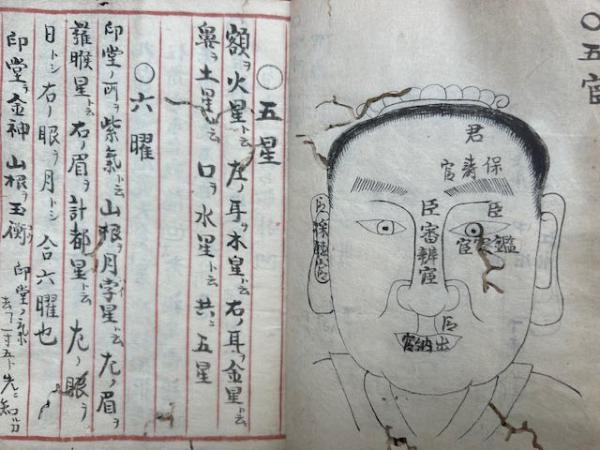 〇五官
君
保壽官
臣
鑑察官
臣審辨官
臣採聽官
臣
出納官
〇五星
額ヲ火星ト云 左ノ耳ヲ木星ト云 右ノ耳ヲ金星ト云
鼻ヲ土星ト云 口ヲ水星ト云 共ニ五星
〇六曜
印堂ノ所ヲ紫氣ト云 山根ヲ月孛星ト云 左ノ眉ヲ
羅睺星ト云 右ノ眉ヲ計都星ト云 左ノ眼ヲ
日トシ 右ノ眼ヲ月トシ 合六曜也
印堂ヲ金神 山根ヲ玉衡 印堂ノ